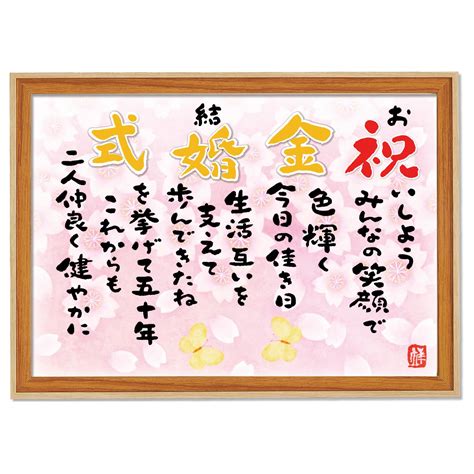 お祝いしよう
みんなの笑顔で
金色輝く
今日の佳き日
結婚生活互いを
支えて
歩んできたね
式を挙げて五十年
これからも
二人仲良く健やかに